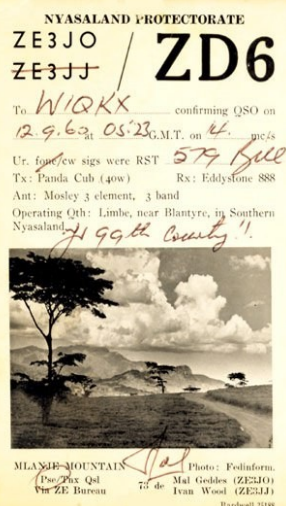 NYASALAND PROTECTORATE
ZE3JO / ZD6
ZE3JJ
To W1QKX confirming QSO on
12.9.60 at 05:23 G.M.T. on 14. mc/s
Ur. fone/cw sigs were RST 579 Bill
Tx: Panda Cub (40w) Rx: Eddystone 888
Ant: Mosley 3 element, 3 band
Operating Qth: Limbe, near Blantyre, in Southern
Nyasaland. 99th County!!
MLANJE MOUNTAIN Photo: Fedinform.
Pse/Tnx Qsl 73 de Mal Geddes (ZE3JO)
Via ZE Bureau Ivan Wood (ZE3JJ)
Bardwell 35188